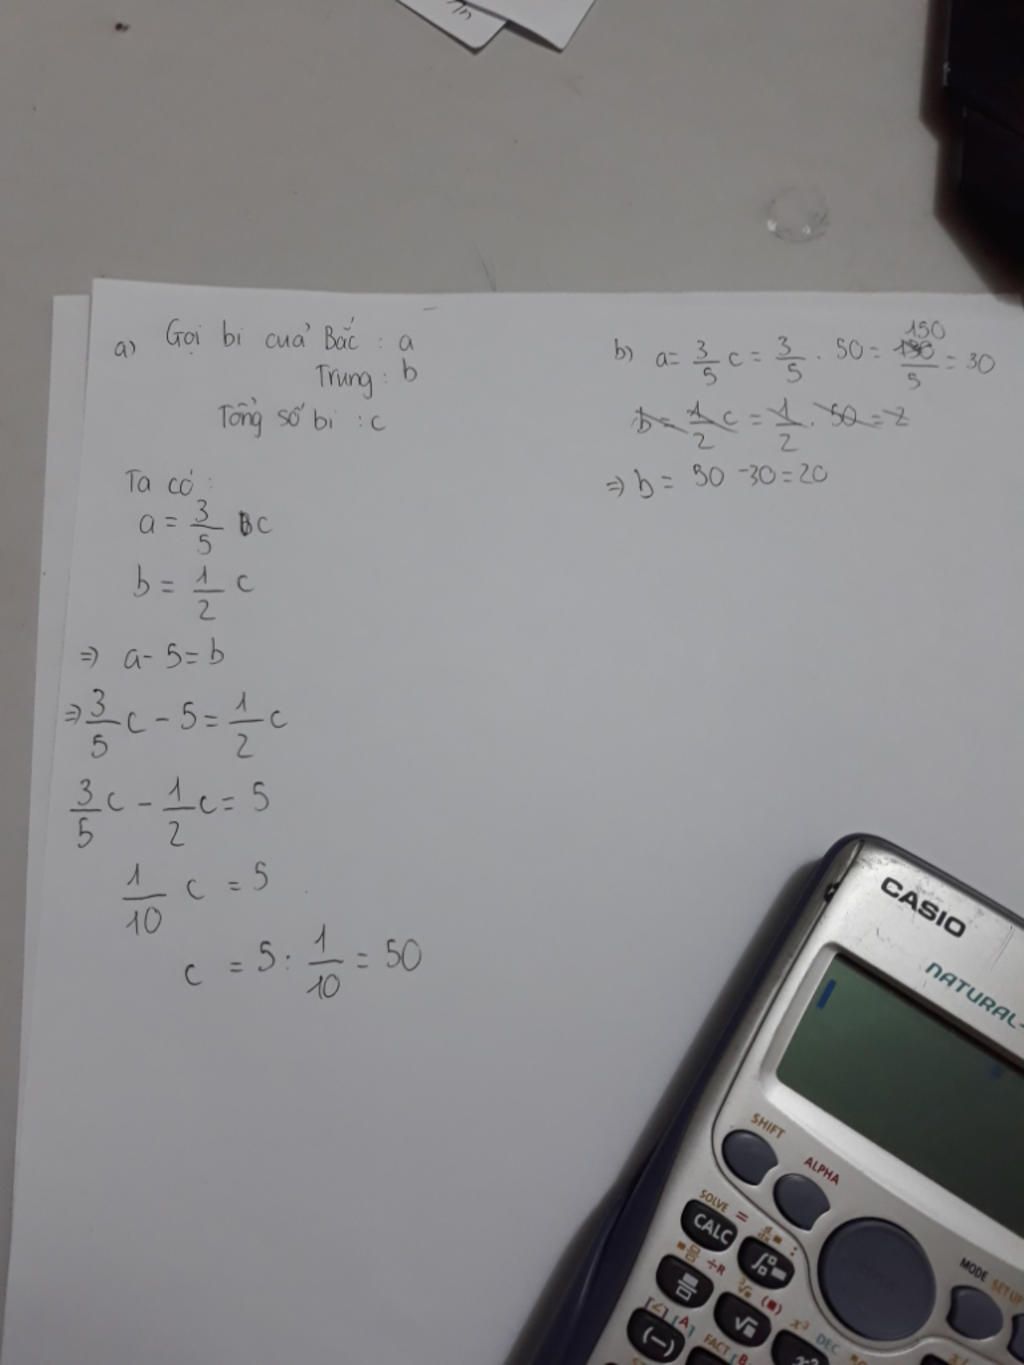 a) Gọi bi của Bắc : a
Trung : b
Tổng số bi : c
Ta có :
a = 3/5 c
b = 1/2 c
=> a - 5 = b
=> 3/5 c - 5 = 1/2 c
3/5 c - 1/2 c = 5
1/10 c = 5
c = 5 : 1/10 = 50
b) a = 3/5 c = 3/5 . 50 = 150/5 = 30
b = 1/2 c = 1/2 . 50 = 2
=> b = 50 - 30 = 20
CASIO
NATURAL-
SHIFT
ALPHA
SOLVE =
CALC
MODE SETUP
÷R
(-)
FACT
DEC